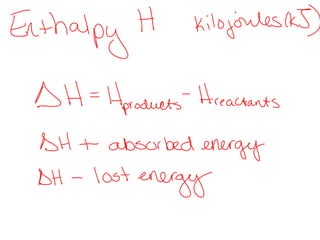 Enthalpy H kilojoules(kJ)
ΔH = Hproducts - Hreactants
ΔH + absorbed energy
ΔH - lost energy